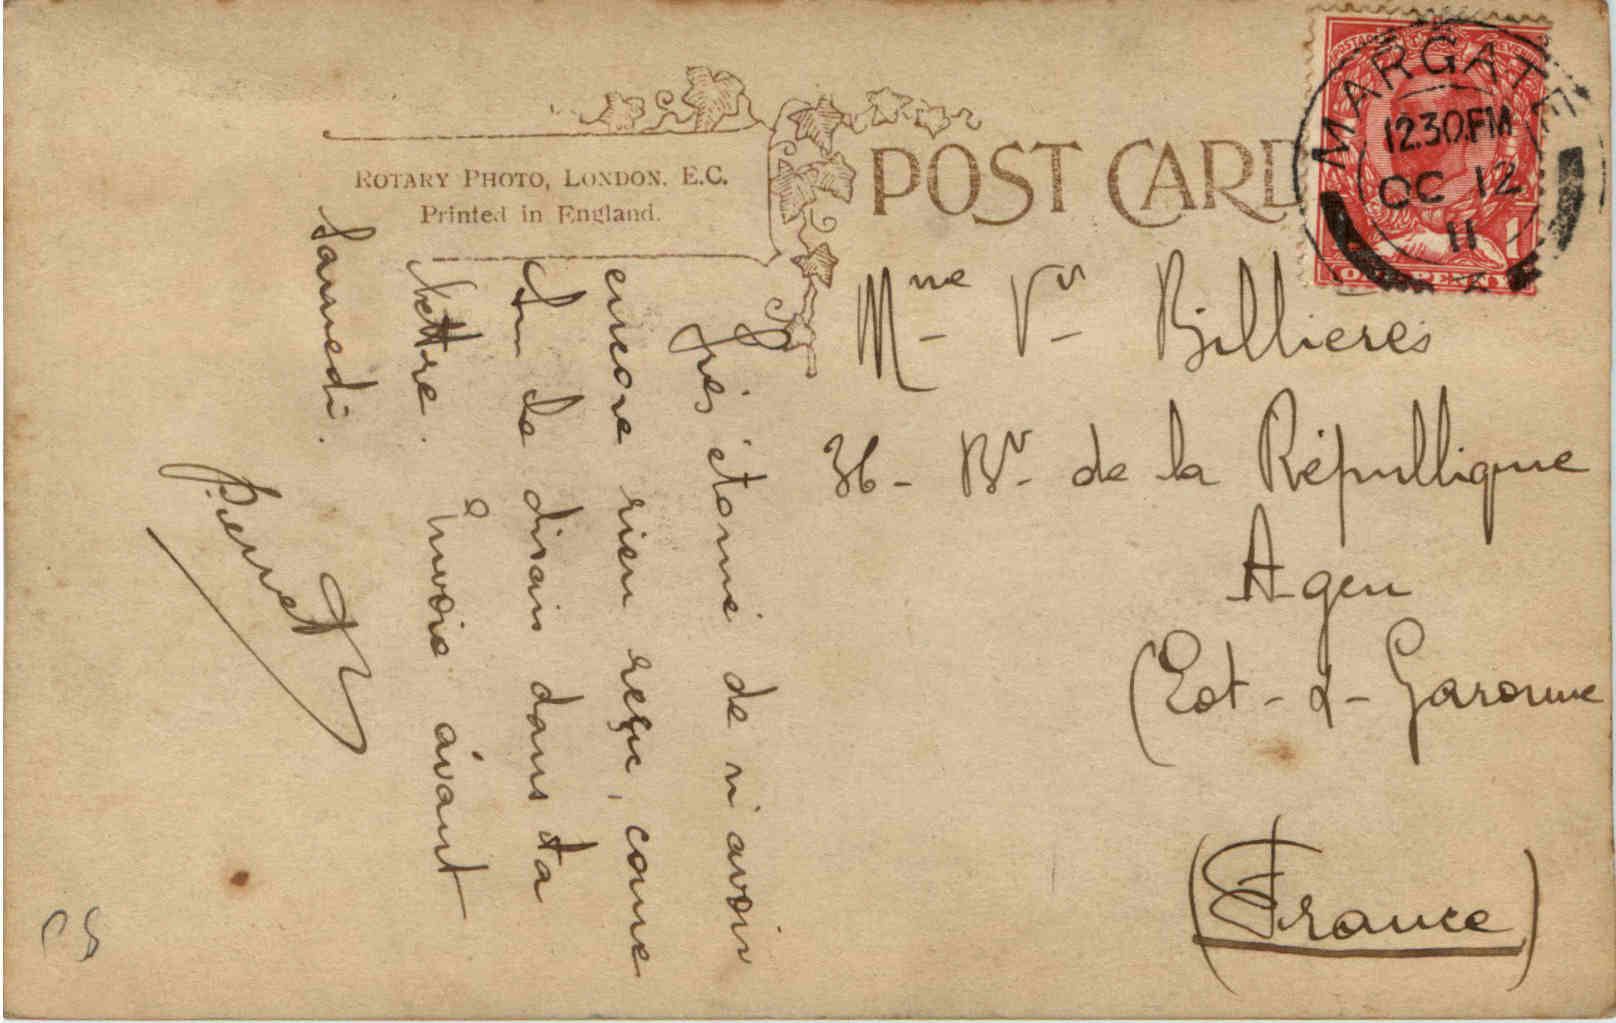 ROTARY PHOTO, LONDON, E.C.
Printed in England.
POST CARD
MARGATE
12.30PM
OC 12
11
ONE PENNY
Très étonné de n'avoir
encore rien reçu, come
tu le disais dans ta
lettre. Envoie avant
Samedi.
Pierret
Mme Vve Billieres
36 - Bd de la Républlique
Agen
(Lot-&-Garonne
(France)